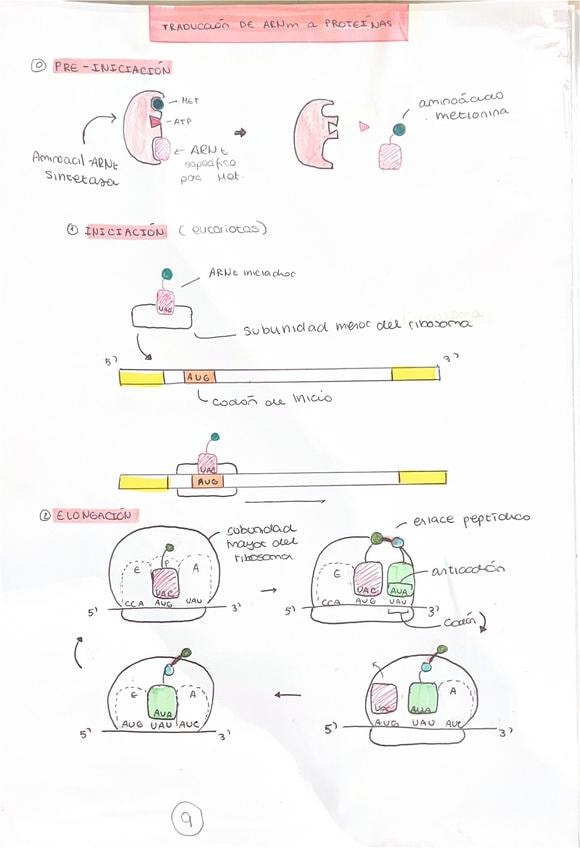 TRADUCCIÓN DE ARNm a PROTEÍNAS
0 PRE-INICIACIÓN
MET
ATP
ARNt
específico
para Met.
Aminoacil-ARNt
sintetasa
aminoácido
metionina
1 INICIACIÓN (eucariotas)
ARNt iniciador
UAC
subunidad menor del ribosoma
5' 3'
AUG
codón de inicio
UAC
AUG
2 ELONGACIÓN
subunidad
mayor del
ribosoma
E P A
UAC
CCA AUG UAU
5' 3'
enlace peptídico
E
anticodón
UAC AUA
CCA AUG UAU
5' 3'
codón
E A
AUA
AUG UAU AUC
5' 3'
A
UAC AUA
AUG UAU AUC
5' 3'
9